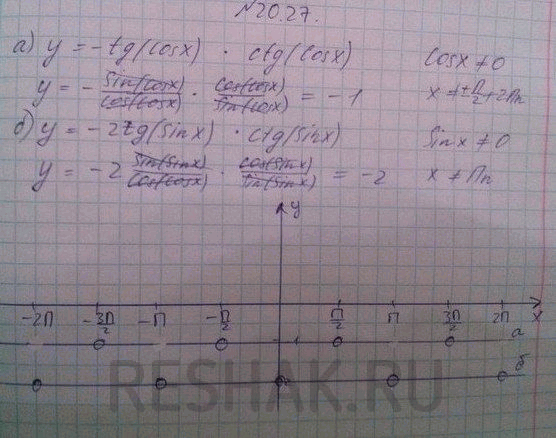 №20.27.
а) y = -tg(cosx) · ctg(cosx)    cosx ≠ 0
y = - sin(cosx)/cos(cosx) · cos(cosx)/sin(cosx) = -1    x ≠ ±П/2 + 2Пn
б) y = -2tg(sinx) · ctg(sinx)    sinx ≠ 0
y = -2 sin(sinx)/cos(cosx) · cos(sinx)/sin(sinx) = -2    x ≠ Пn
y
-2П -3П/2 -П -П/2 П/2 П 3П/2 2П x
-1 а
б
RESHAK.RU